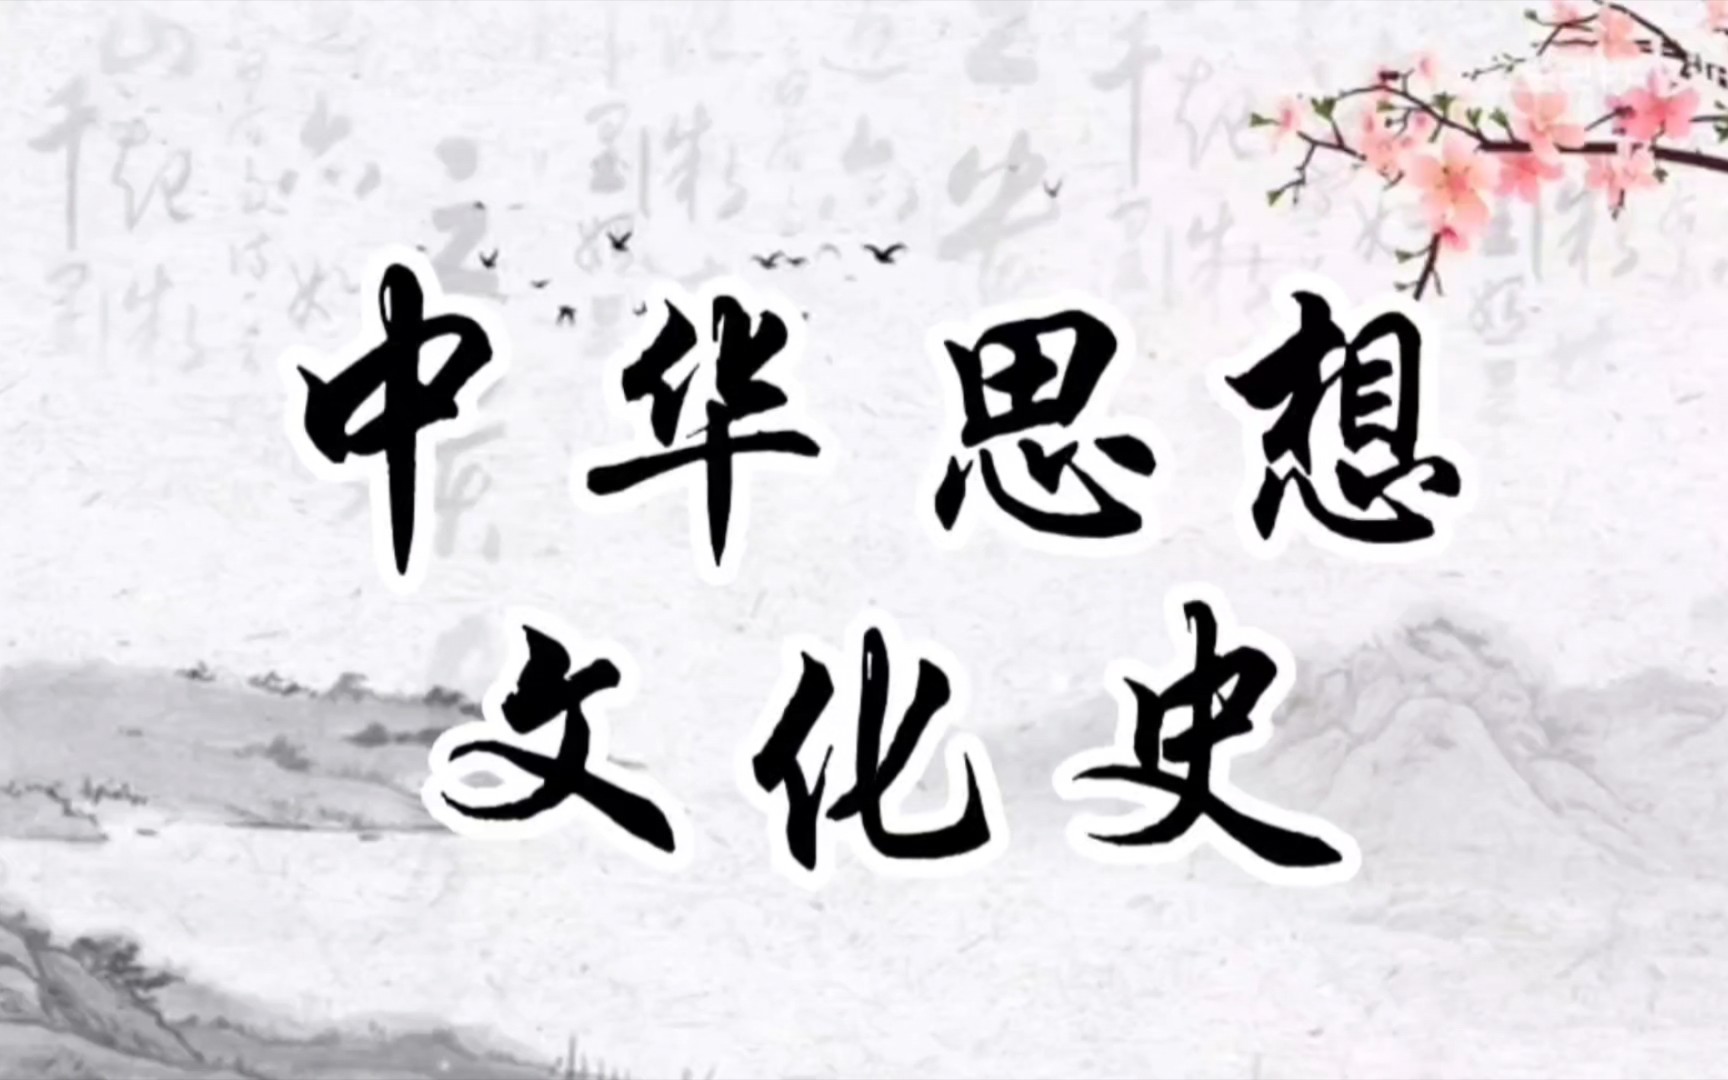 中华思想
文化史